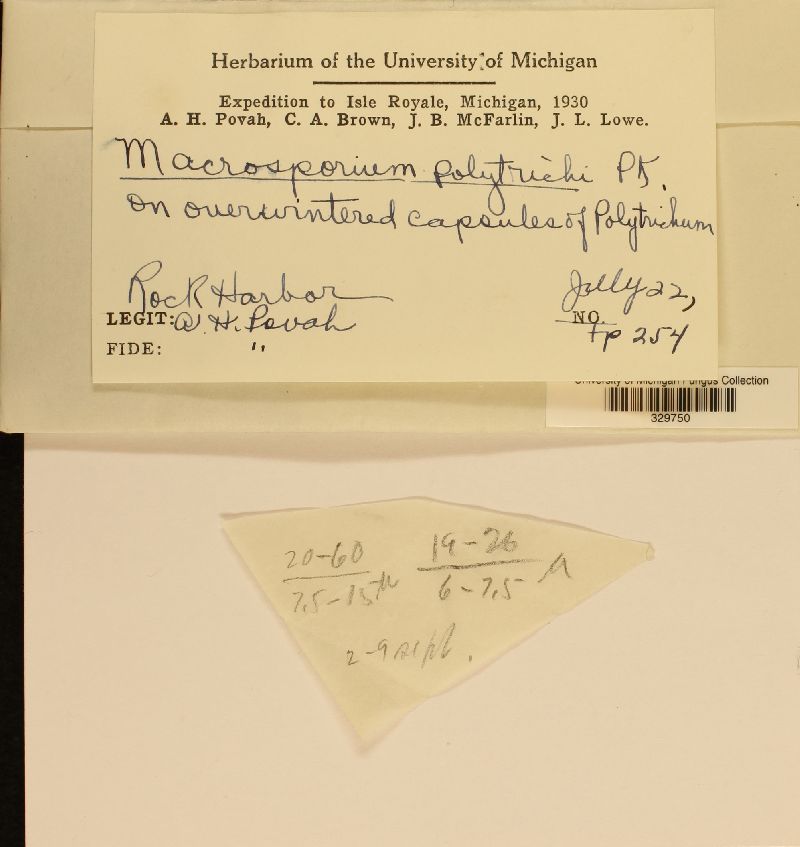 Herbarium of the University of Michigan
Expedition to Isle Royale, Michigan, 1930
A. H. Povah, C. A. Brown, J. B. McFarlin, J. L. Lowe.
Macrosporium polytrichi Pk.
on overwintered capsules of Polytrichum
Rock Harbor July 22,
LEGIT: A. H. Povah NO. Fp 254
FIDE: "
University of Michigan Fungus Collection
329750
20-60 19-26
7.5-15 µ 6-7.5 µ
2-9 sept.